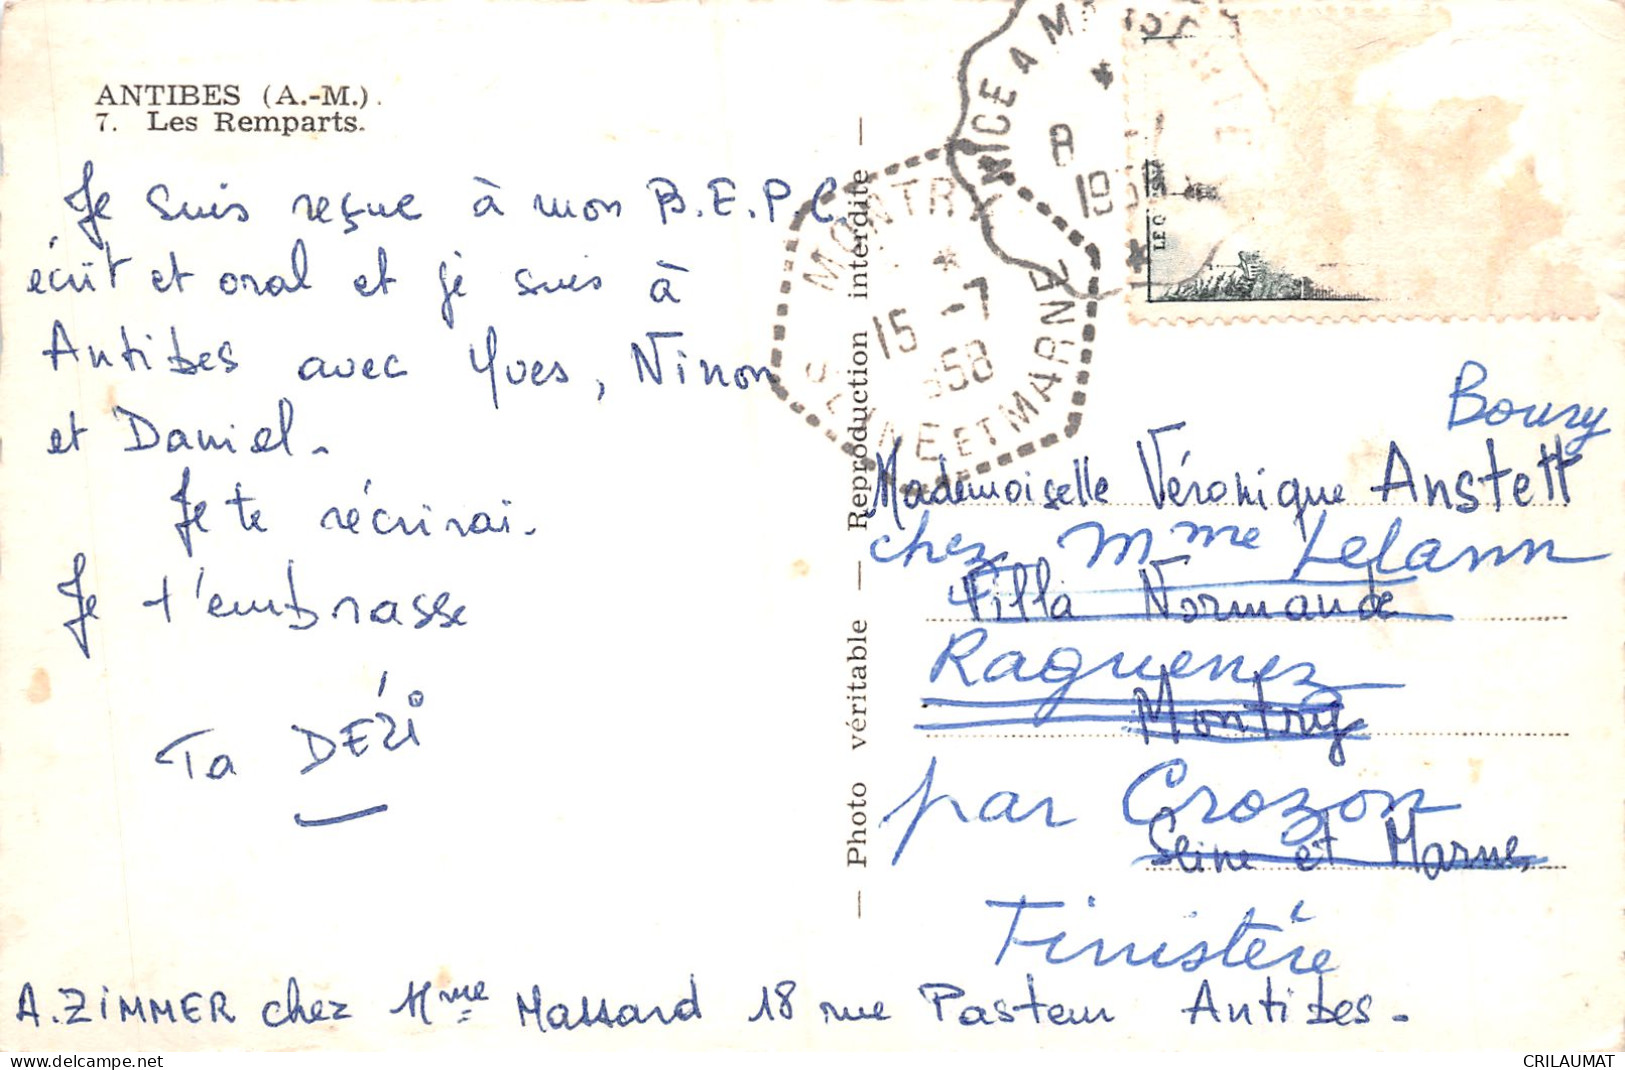 ANTIBES (A.-M.).
7. Les Remparts.
Je suis reçue à mon B.E.P.C.
écrit et oral et je suis à
Antibes avec Yves, Ninon
et Daniel.
Je te récrirai.
Je t'embrasse
Ta DÉZI
A. ZIMMER chez Mme Massard 18 rue Pasteur Antibes.
— Photo véritable — Reproduction interdite —
NICE A
8
MONTRY
15 -7
1958
SEINE ET MARNE
Boury
Mademoiselle Véronique Anstett
chez Mme Lelann
Villa Normande
Raguenez
Montry
par Crozon
Seine et Marne
Finistère
www.delcampe.net
CRILAUMAT